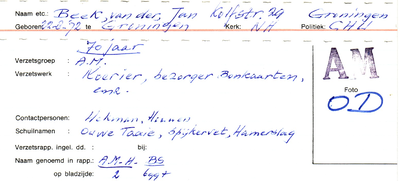 Naam etc.: Beek, van der, Jan Kolfstr. 29 Groningen
Geboren: 22-2-'92 te Groningen Kerk: NH Politiek: CHU
70 jaar
Verzetsgroep : A.M.
Verzetswerk : Koerier, bezorger Bonkaarten, enz.
AM
Foto
OD
Contactpersonen: Wehman, Hennen
Schuilnamen : Ouwe Taaie, Spijkervet, Hamerslag
Verzetsrapp. ingel. dd. : bij:
Naam genoemd in rapp.: A.M.-H. BS
op bladzijde: 2